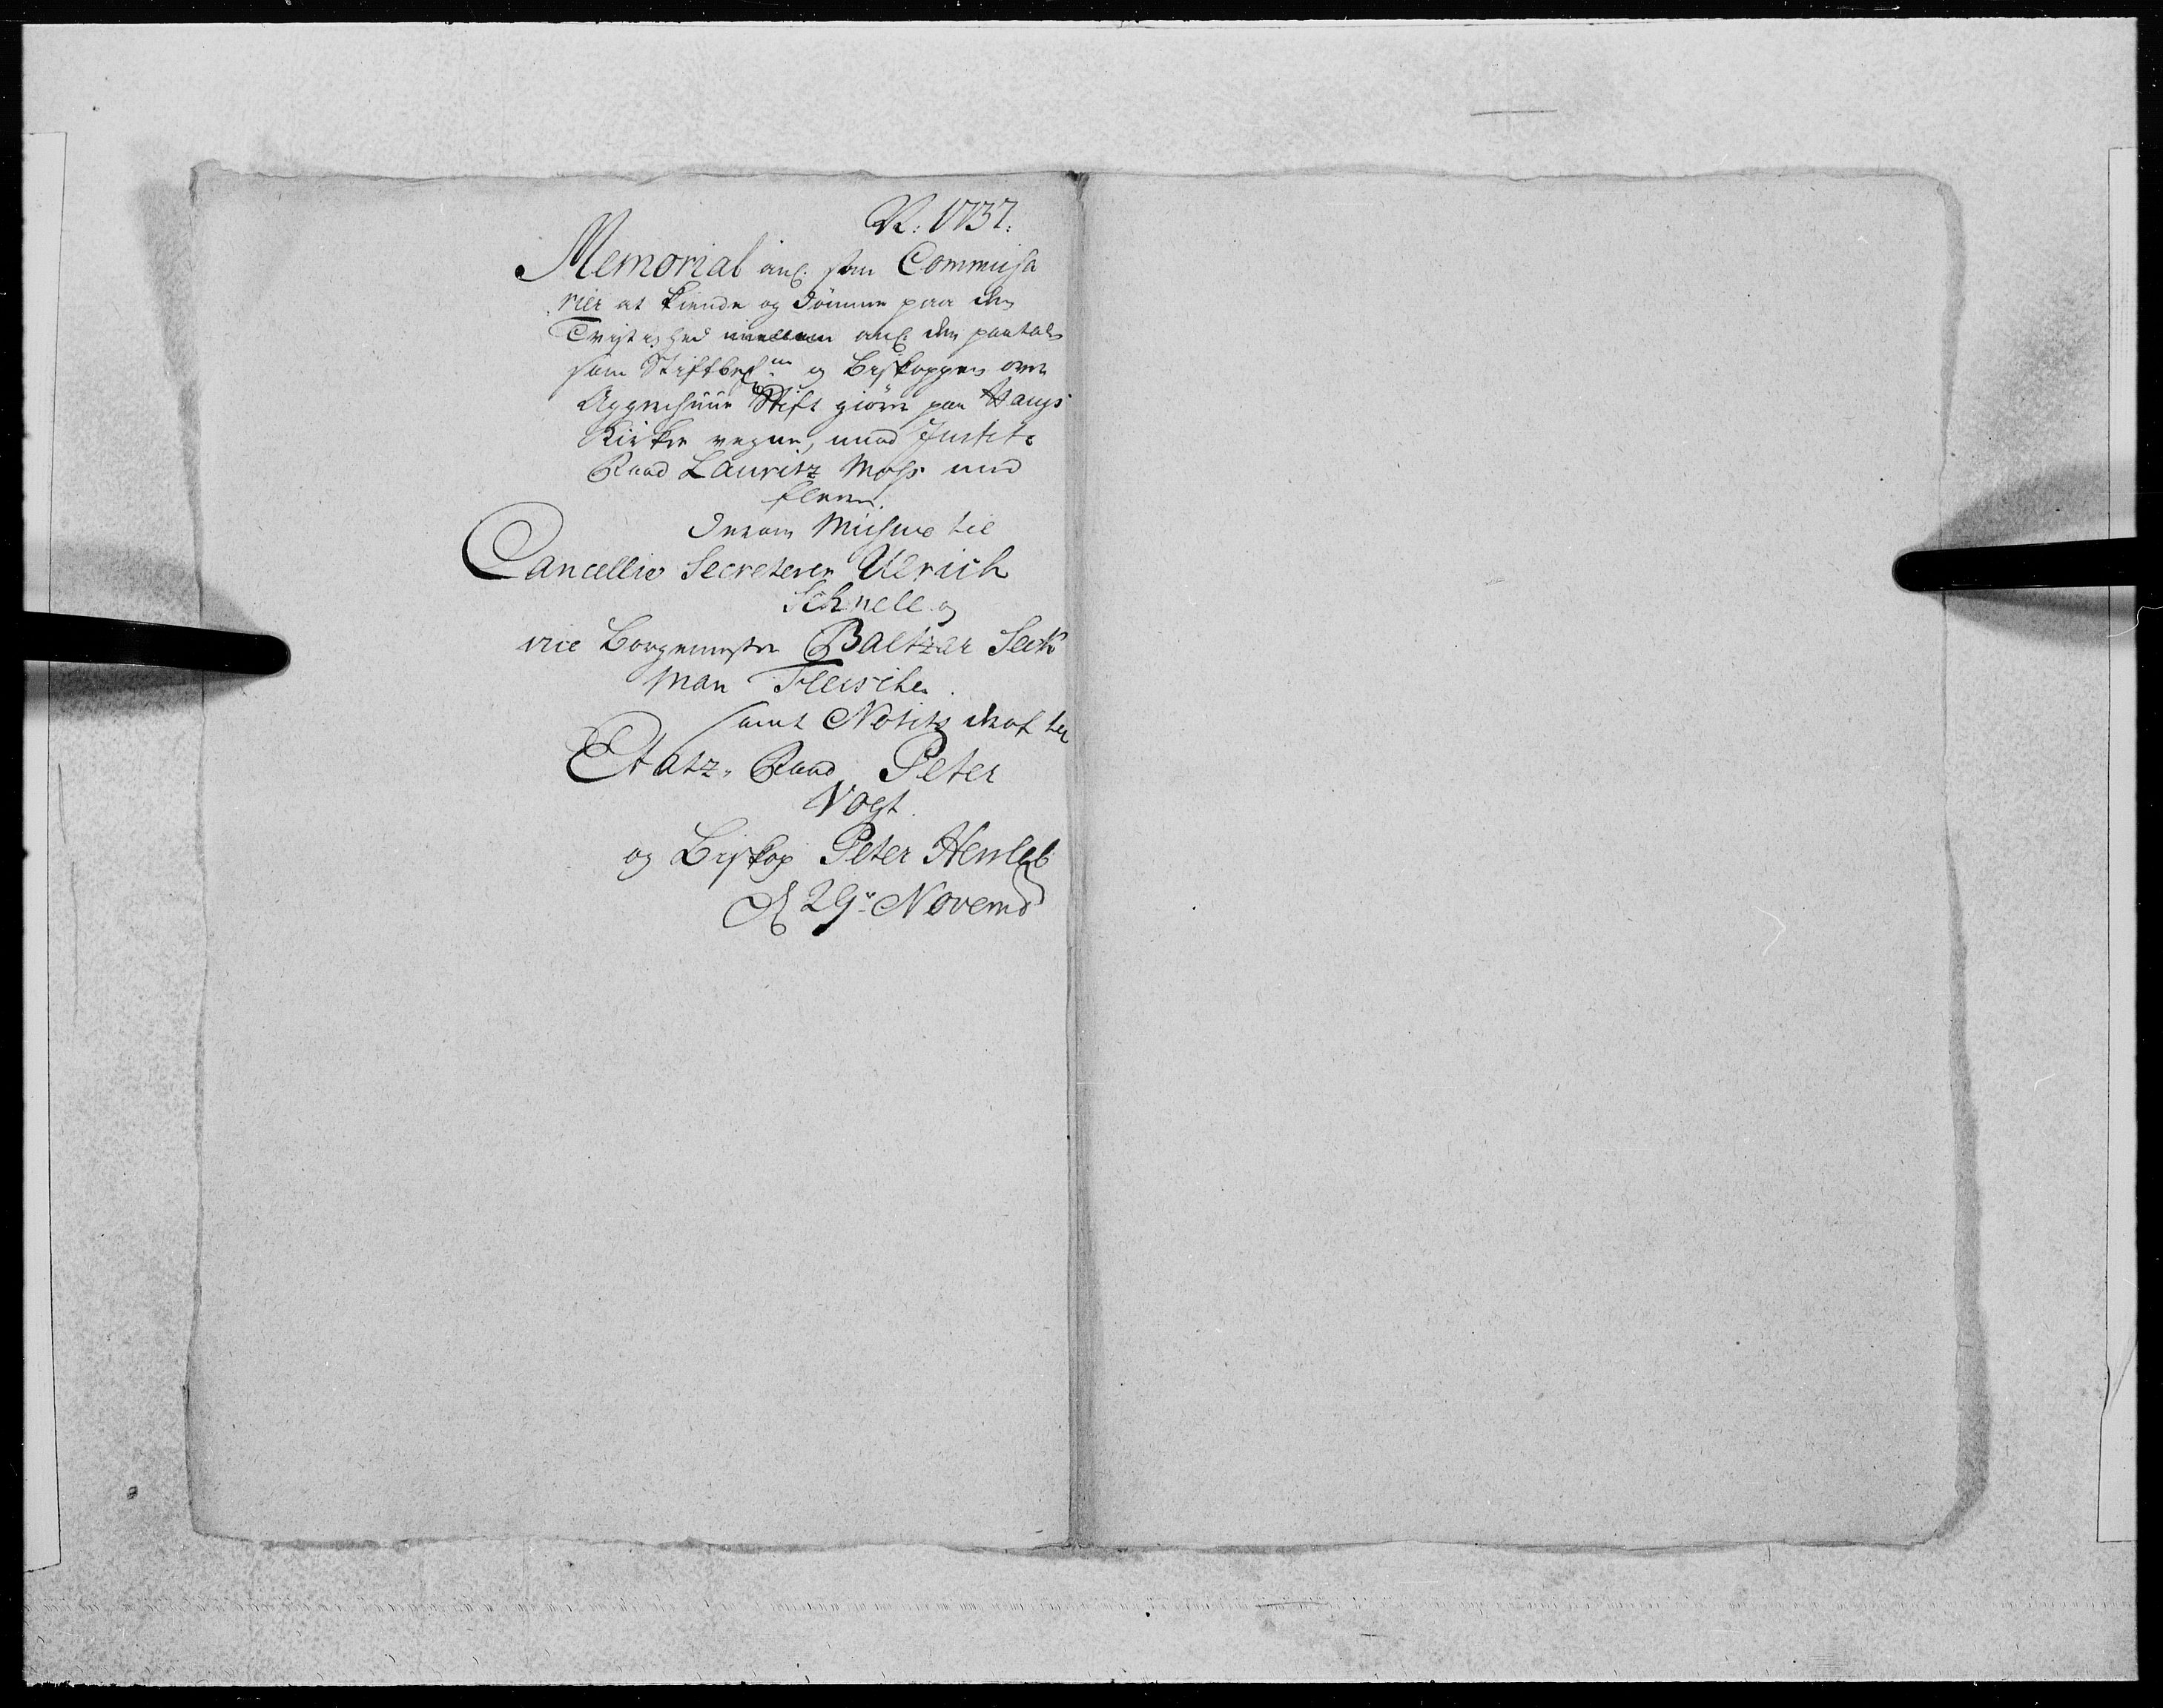 N: 1737.
Memorial ang: som Commissa
rier at kiende og dömme paa den
Tvistighed mellem ang: den paatale
som Stiftbef: og Biskoppen over
Aggershuus Stift giöre paa Haugs
Kirkes vegne, mod Justitz
Raad Lauritz Moss med
fleere.
Derom Missive til
Cancellie Secreterer Ulrich
Schnell og
vice Borgemester Baltzer Seck
man Fleischer.
samt Notitz deraf til
Etatz-Raad Peter
Vogt.
og Biskop Peter Hersleb
d 29 Novemb